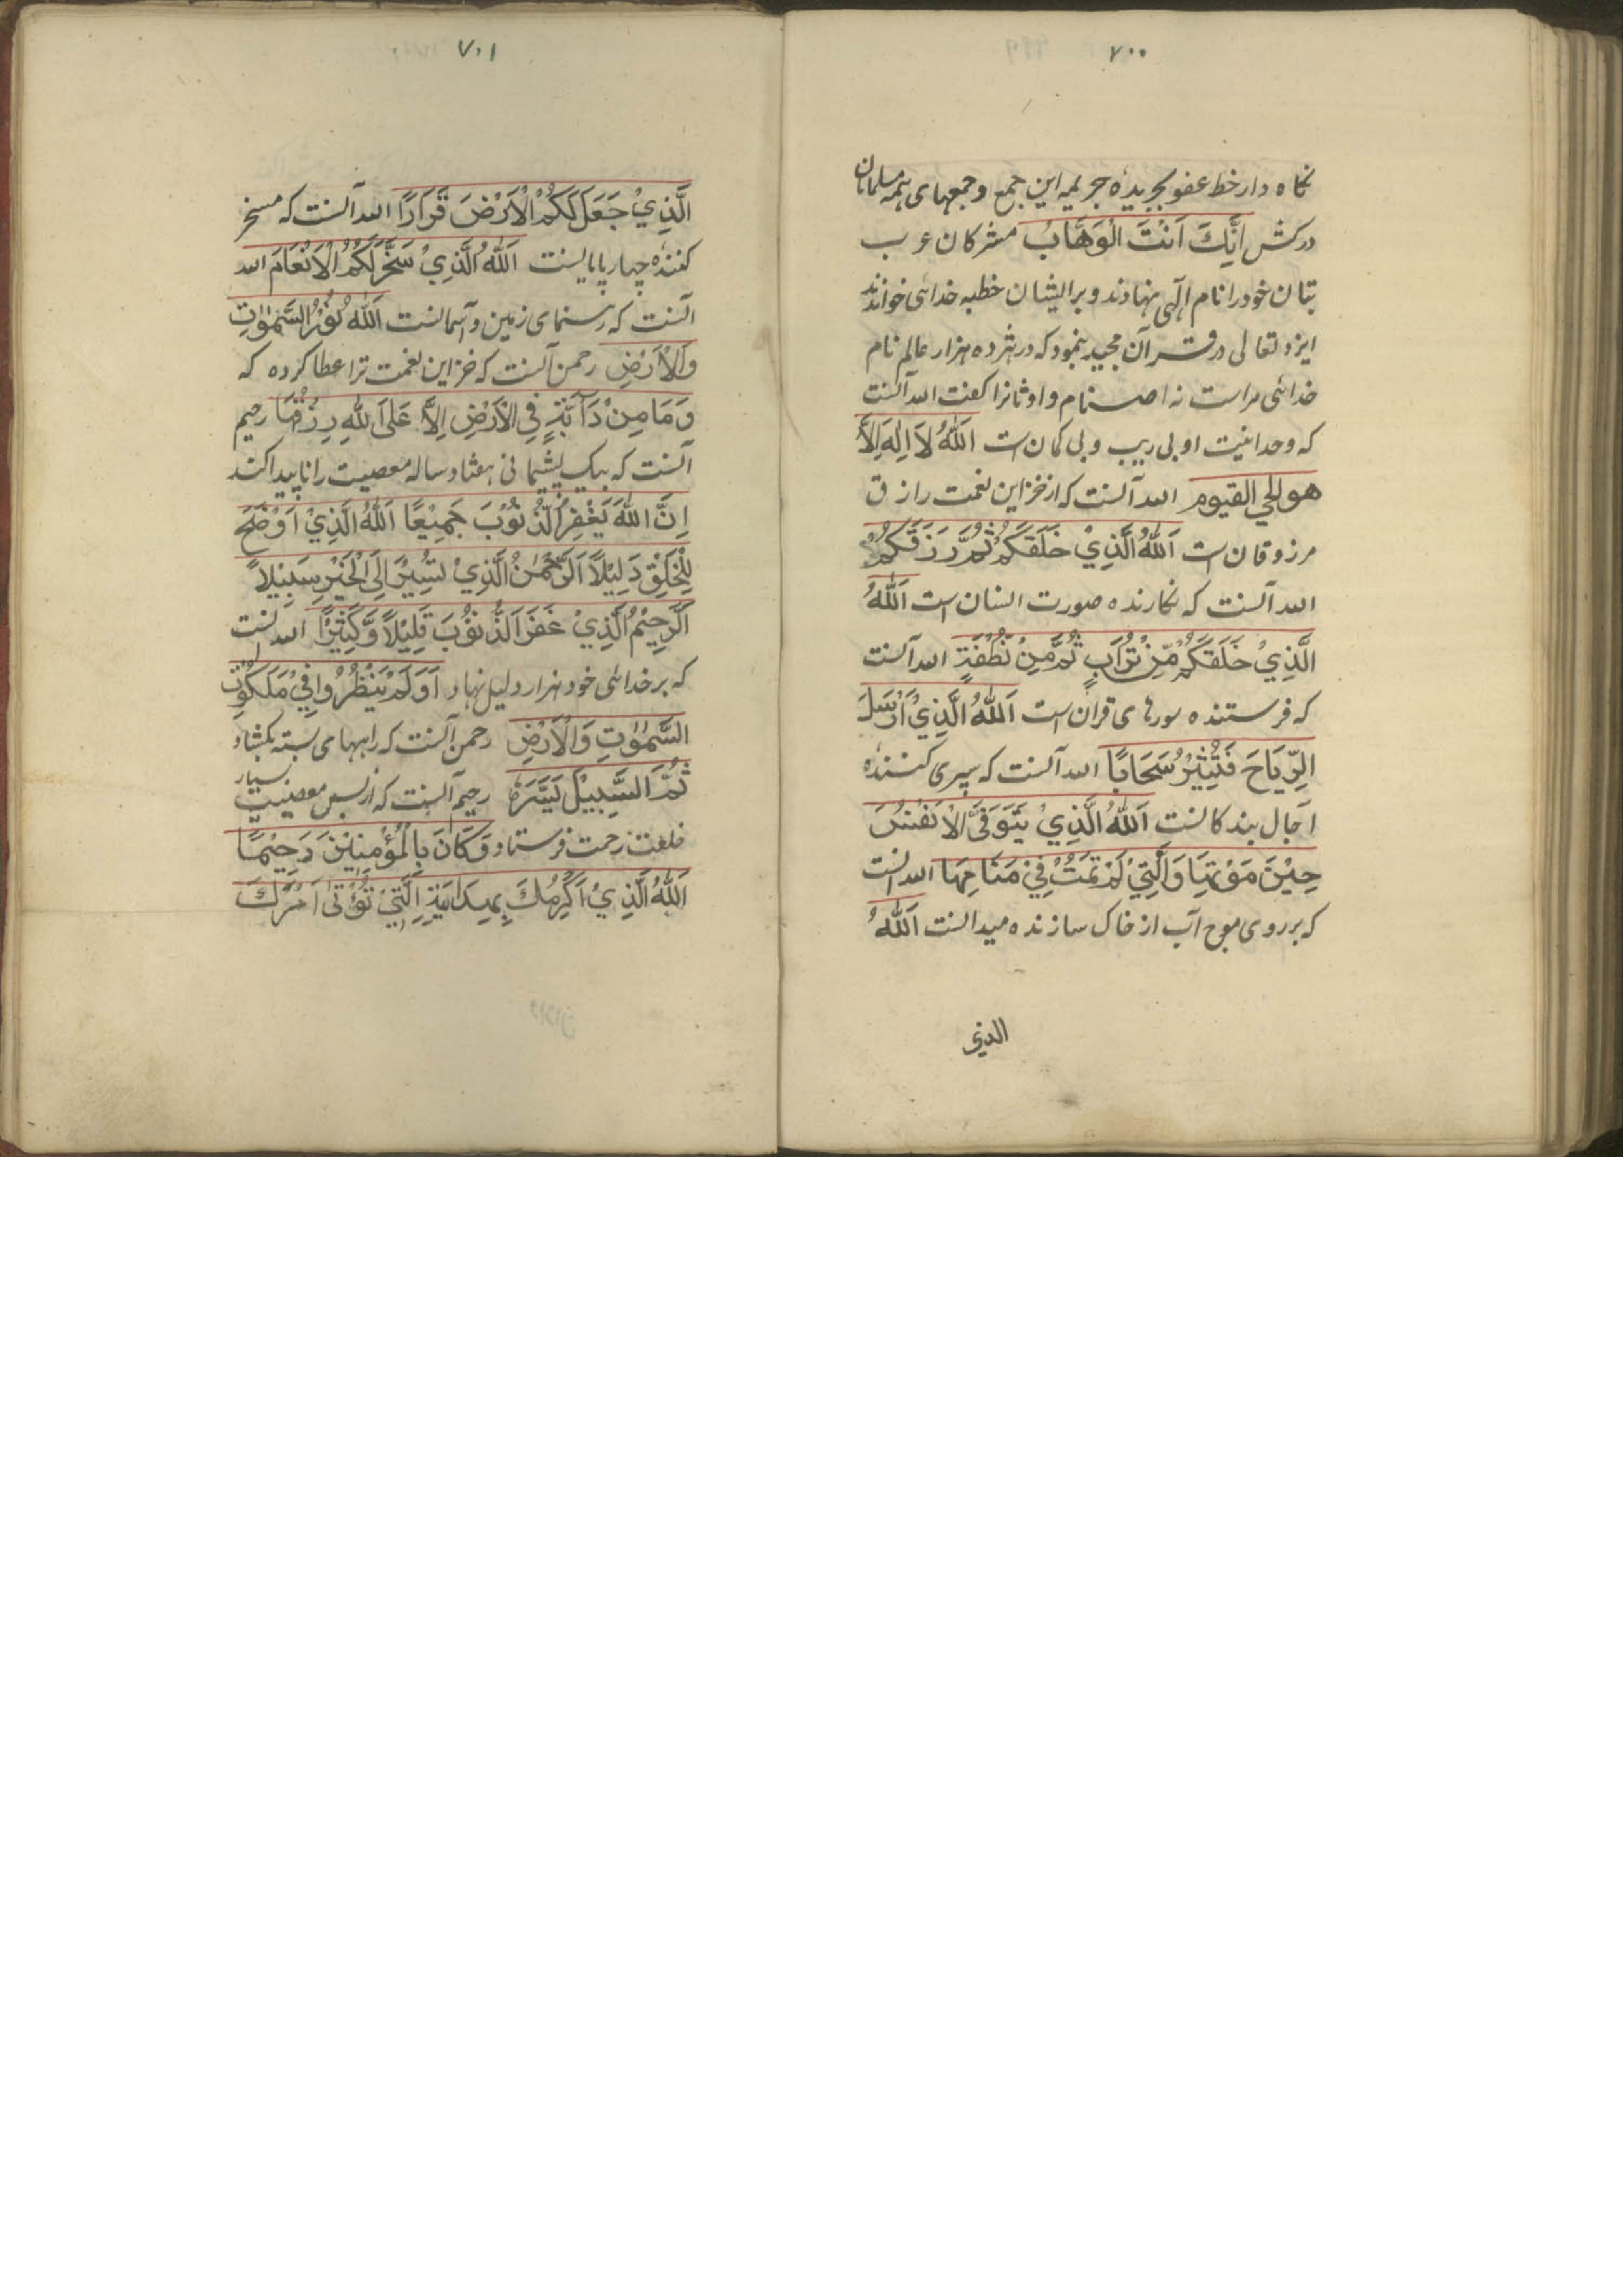 ٧٠٠
نکاه دار خط عفو بجریدهٔ جریمه این جمع و جمعهای همه مسلمانان
درکش اِنَّكَ اَنْتَ الْوَهَّابُ مشرکان عرب
بتان خود را نام الٓهی نهادند و بر ایشان خطبه خدائی خواندند
ایزد تعالی در قرآن مجید بنمود که در هژده هزار عالم نام
خدائی مراست نه اصنام و اوثانرا کفت الله آنست
که وحدانیت او بی ریب و بی کمان است اَللّٰهُ لَا اِلٰهَ اِلَّا
هو الحي القيوم الله آنست که از خزاین نعمت رازق
مرزوقان است اَللّٰهُ الَّذِيْ خَلَقَكُمْ ثُمَّ رَزَقَكُمْ
الله آنست که نکارنده صورت انسان است اَللّٰهُ
الَّذِيْ خَلَقَكُمْ مِّنْ تُرَابٍ ثُمَّ مِنْ نُطْفَةٍ الله آنست
که فرستنده سورهای قران است اَللّٰهُ الَّذِيْ اَرْسَلَ
الرِّيَاحَ فَتُثِيْرُ سَحَابًا الله آنست که سپری کننده
آجال بندکانست اَللّٰهُ الَّذِيْ يَتَوَفَّى الْاَنْفُسَ
حِيْنَ مَوْتِهَا وَالَّتِيْ لَمْ تَمُتْ فِيْ مَنَامِهَا الله آنست
که بر روی موج آب از خاک سازنده میدانست اَللّٰهُ
الذي
٧٠١
الَّذِيْ جَعَلَ لَكُمُ الْاَرْضَ قَرَارًا الله آنست که مسخر
کننده چهارپایانست اَللّٰهُ الَّذِيْ سَخَّرَ لَكُمُ الْاَنْعَامَ الله
آنست که رهنمای زمین و آسمانست اَللّٰهُ نُوْرُ السَّمٰوٰتِ
وَالْاَرْضِ رحمن آنست که خزاین نعمت ترا عطا کرده که
وَمَا مِنْ دَآبَّةٍ فِي الْاَرْضِ اِلَّا عَلَى اللّٰهِ رِزْقُهَا رحیم
آنست که بیک پشیمانی هفتاد ساله معصیت را ناپیدا کند
اِنَّ اللّٰهَ يَغْفِرُ الذُّنُوْبَ جَمِيْعًا اَللّٰهُ الَّذِيْ اَوْضَحَ
لِلْخَلْقِ دَلِيْلًا اَلرَّحْمٰنُ الَّذِيْ يُسِيْرُ اِلَى الْخَيْرِ سَبِيْلًا
اَلرَّحِيْمُ الَّذِيْ غَفَرَ الذُّنُوْبَ قَلِيْلًا وَّكَثِيْرًا الله آنست
که بر خدائی خود هزار دلیل نهاد اَوَلَمْ يَنْظُرُوْا فِيْ مَلَكُوْتِ
السَّمٰوٰتِ وَالْاَرْضِ رحمن آنست که راههای بسته بکشاد
ثُمَّ السَّبِيْلَ يَسَّرَهٗ رحیم آنست که از پس معصیت بسیار
خلعت رحمت فرستاد وَكَانَ بِالْمُؤْمِنِيْنَ رَحِيْمًا
اَللّٰهُ الَّذِيْ اَكْرَمَكَ الَّتِيْ